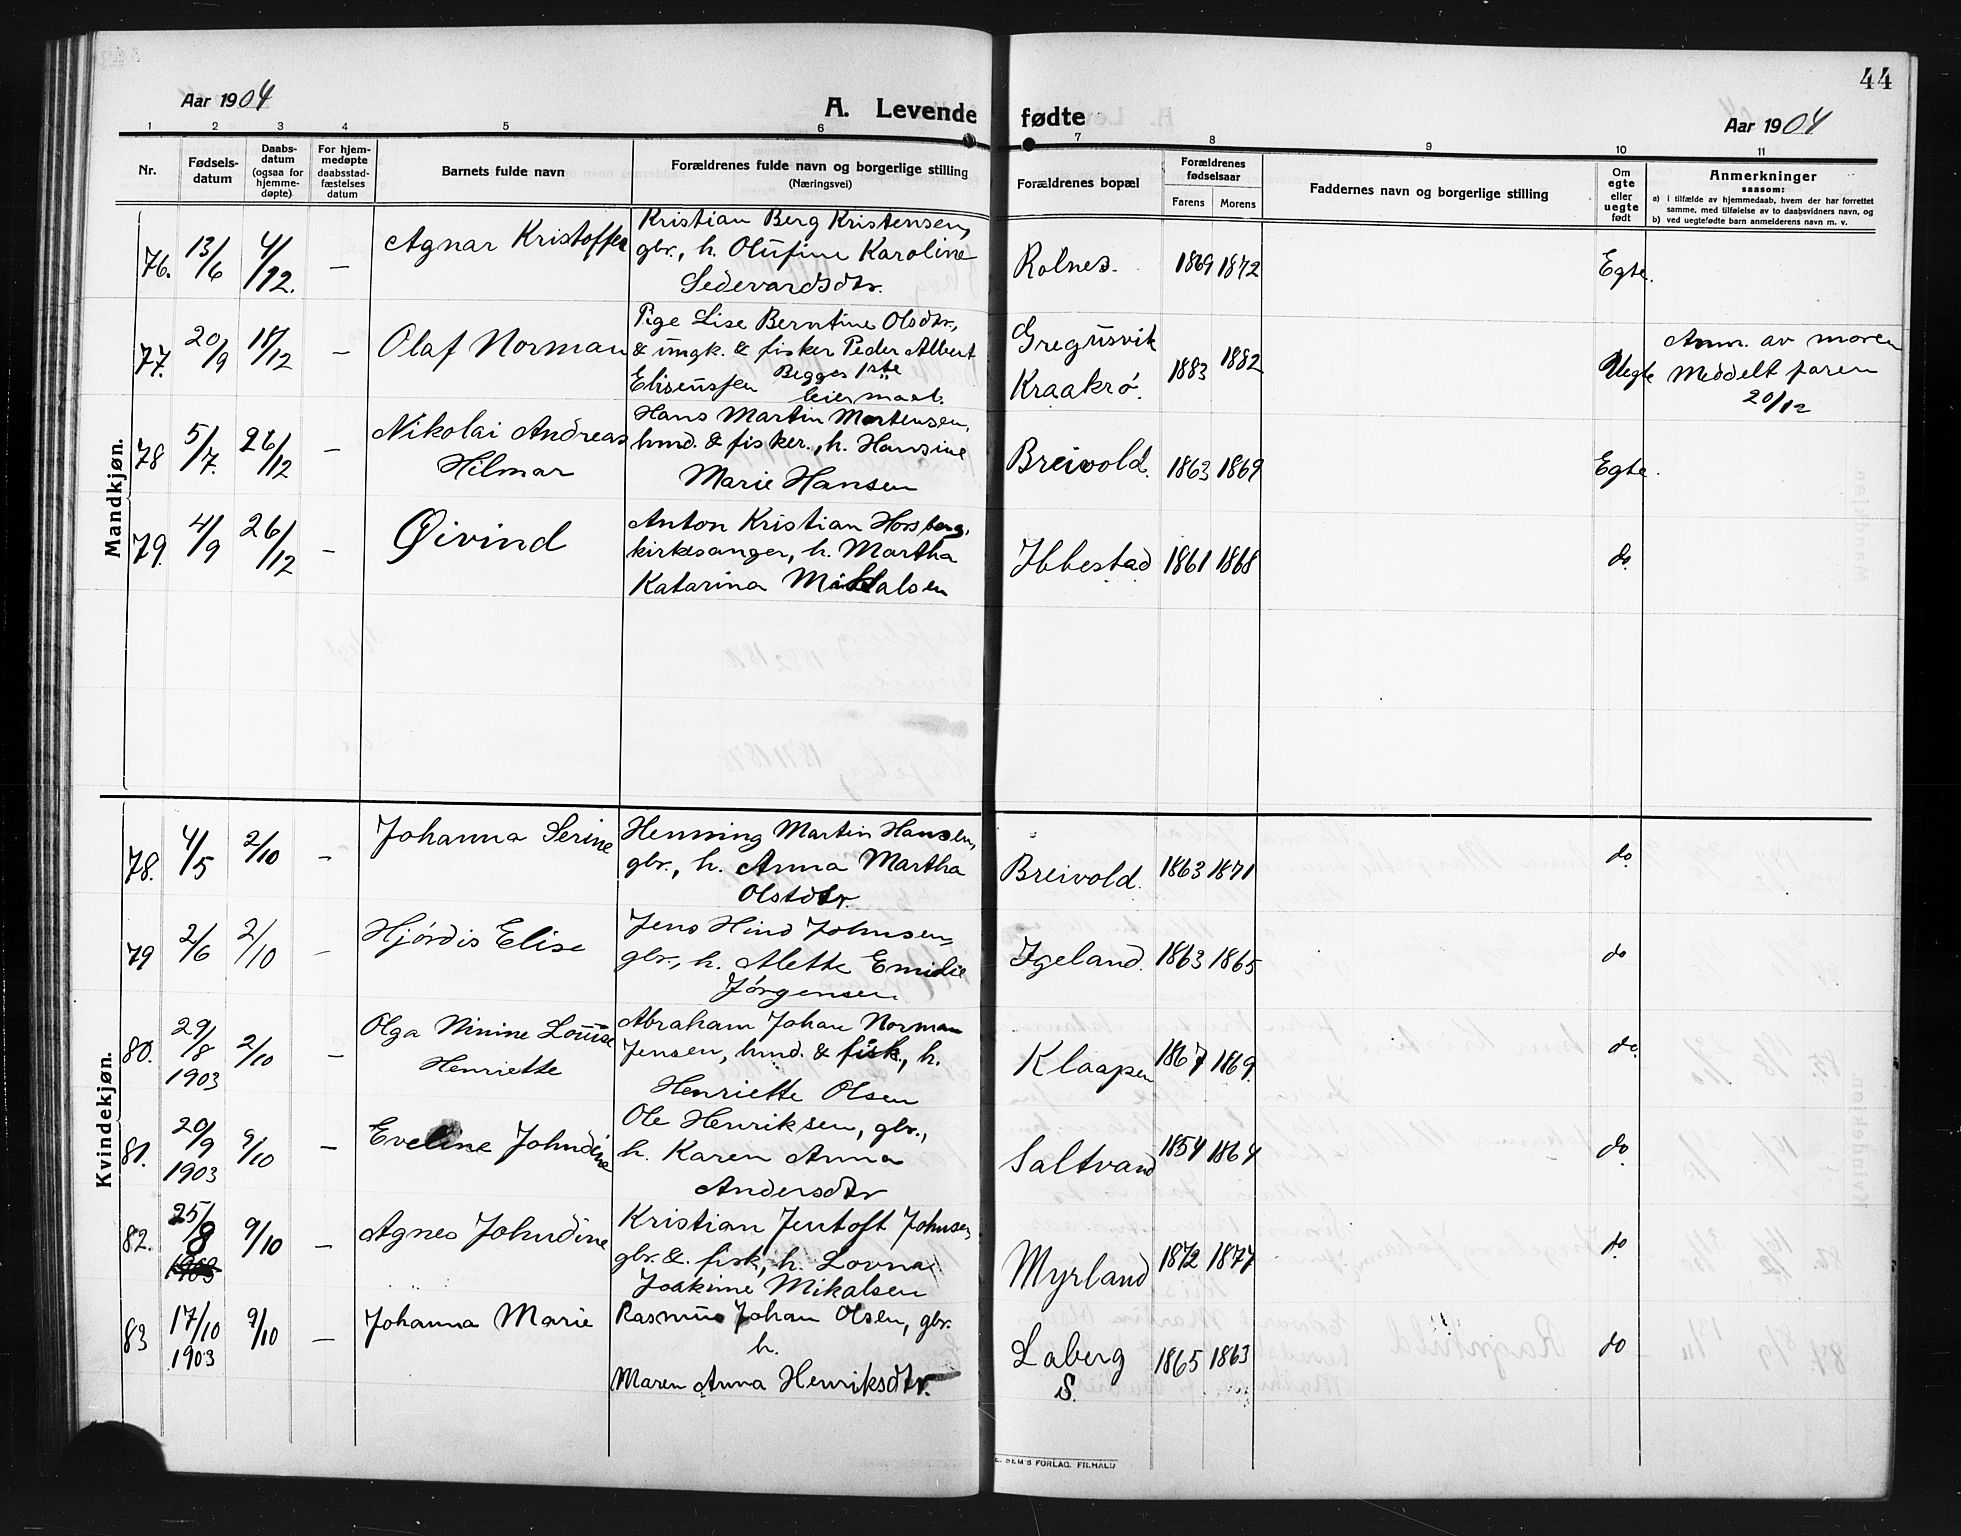 44
Aar 1904
A. Levende fødte
Aar 1904
1 2 3 4 5 6 7 8 9 10 11
Nr.
Fødsels-
datum
Daabs-
datum
(ogsaa for
hjemme-
døpte)
For hjem-
medøpte
daabsstad-
fæstelses
datum
Barnets fulde navn
Forældrenes fulde navn og borgerlige stilling
(Næringsvei)
Forældrenes bopæl
Forældrenes
fødselsaar
Farens Morens
Faddernes navn og borgerlige stilling
Om
egte
eller
uegte
født
Anmerkninger
saasom:
a) i tilfælde av hjemmedaab, hvem der har forrettet
samme, med tilføielse av to daabsvidners navn, og
b) ved uegtefødte barn anmelderens navn m. v.
Mandkjøn.
76. 13/6 4/12. – Agnar Kristoffer
Kristian Berg Kristensen,
gbr., h. Olufine Karoline
Sedevardsdtr.
Rolnes. 1869 1872 Egte.
77. 20/9 18/12 – Olaf Norman
Pige Lise Berntine Olsdtr.,
& ungk. & fisker Peder Albert
Eliseussen Begges 1ste
leiermaal.
Gregusvik
Kraakrø. 1883 1882 Uegte
Anm. av moren
Meddelt faren
20/12
78 5/7. 26/12 – Nikolai Andreas
Hilmar
Hans Martin Mortensen,
hmd. & fisker., h. Hansine
Marie Hansen
Breivold. 1863 1869 Egte.
79. 4/9 26/12 – Øivind
Anton Kristian Horsberg,
kirkesanger, h. Martha
Katarina Mikalsen
Ibbestad 1861 1868 do.
Kvindekjøn.
78. 4/5 2/10 – Johanna Serine
Henning Martin Hansen,
gbr., h. Anna Martha
Olstdtr.
Breivold. 1863 1871 do.
79 2/6 2/10 – Hjørdis Elise
Jens Hind Johnsen,
gbr., h. Alette Emilie
Jørgensen
Igeland. 1863 1865 do
80. 29/8 1903 2/10 – Olga Ninine Louise
Henriette
Abraham Johan Norman
Jensen, hmd. & fisk., h.
Henriette Olsen
Klaapen 1867 1869. do.
81. 20/9 1903 9/10 – Eveline Johndine
Ole Henriksen, gbr.,
h. Karen Anna
Andersdtr
Saltvand 1854 1864 do.
82. 25/8 1903 9/10 – Agnes Johndine
Kristian Jentoft Johnsen
gbr. & fisk, h. Lovna
Joakime Mikalsen
Myrland 1872 1877 do.
83 17/10 1903 9/10 – Johanna Marie
Rasmus Johan Olsen, gbr.
h.
Maren Anna Henriksdtr.
Laberg
S. 1865 1863 do
E. SEM'S FORLAG. FR.HALD